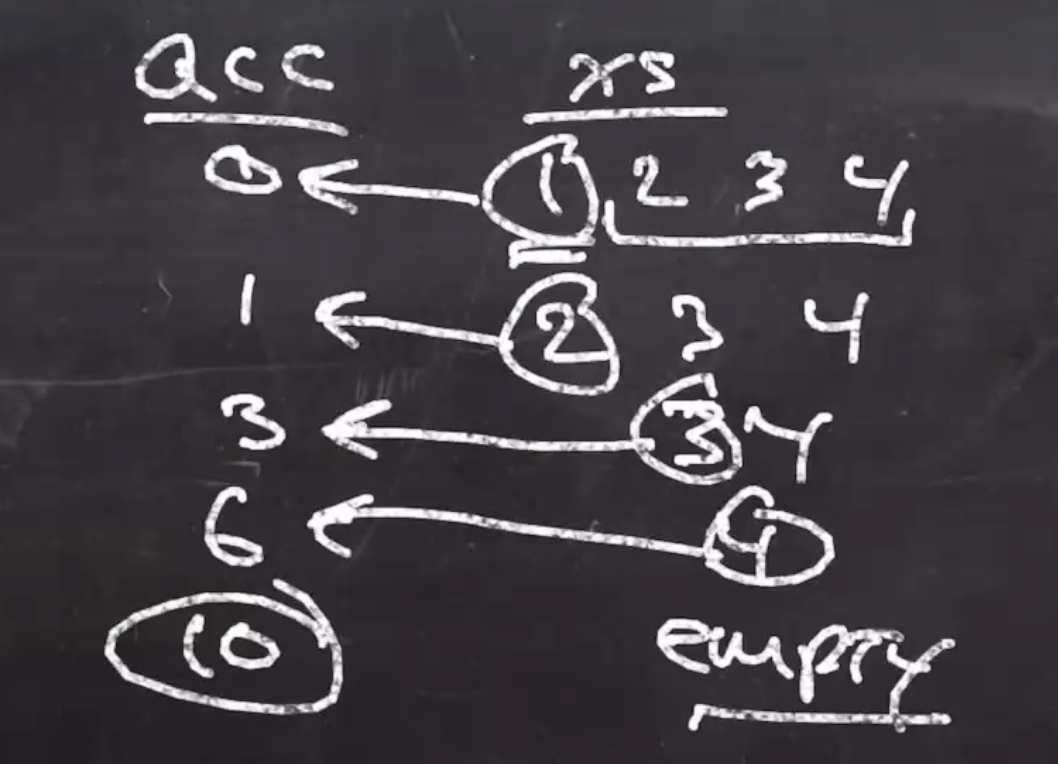 acc xs
0 1 2 3 4
1 2 3 4
3 3 4
6 4
10 empty